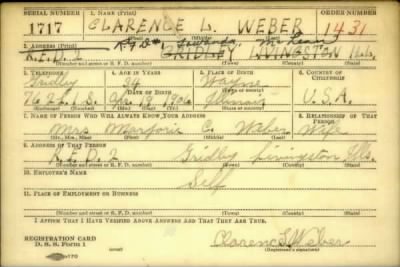 SERIAL NUMBER 1. NAME (Print) ORDER NUMBER
1717 CLARENCE L. WEBER 1431
(First) (Middle) (Last)
2. ADDRESS (Print) R.F.D. #1 McLean
R.F.D. 2 GRIDLEY LIVINGSTON Ills.
(Number and street or R. F. D. number) (Town) (County) (State)
3. TELEPHONE 4. AGE IN YEARS 5. PLACE OF BIRTH 6. COUNTRY OF CITIZENSHIP
Gridley 34 Wayne
DATE OF BIRTH (Town or county)
1906 Illinois U.S.A.
(Exchange) (Number) (Mo.) (Day) (Yr.) (State or country)
7. NAME OF PERSON WHO WILL ALWAYS KNOW YOUR ADDRESS 8. RELATIONSHIP OF THAT PERSON
Mrs Marjorie C. Weber Wife
(Mr., Mrs., Miss) (First) (Middle) (Last)
9. ADDRESS OF THAT PERSON
R.F.D. 2 Gridley Livingston Ills.
(Number and street or R. F. D. number) (Town) (County) (State)
10. EMPLOYER'S NAME
Self
11. PLACE OF EMPLOYMENT OR BUSINESS
(Number and street or R. F. D. number) (Town) (County) (State)
I AFFIRM THAT I HAVE VERIFIED ABOVE ANSWERS AND THAT THEY ARE TRUE.
REGISTRATION CARD
D. S. S. Form 1 Clarence L Weber
(Registrant's signature)